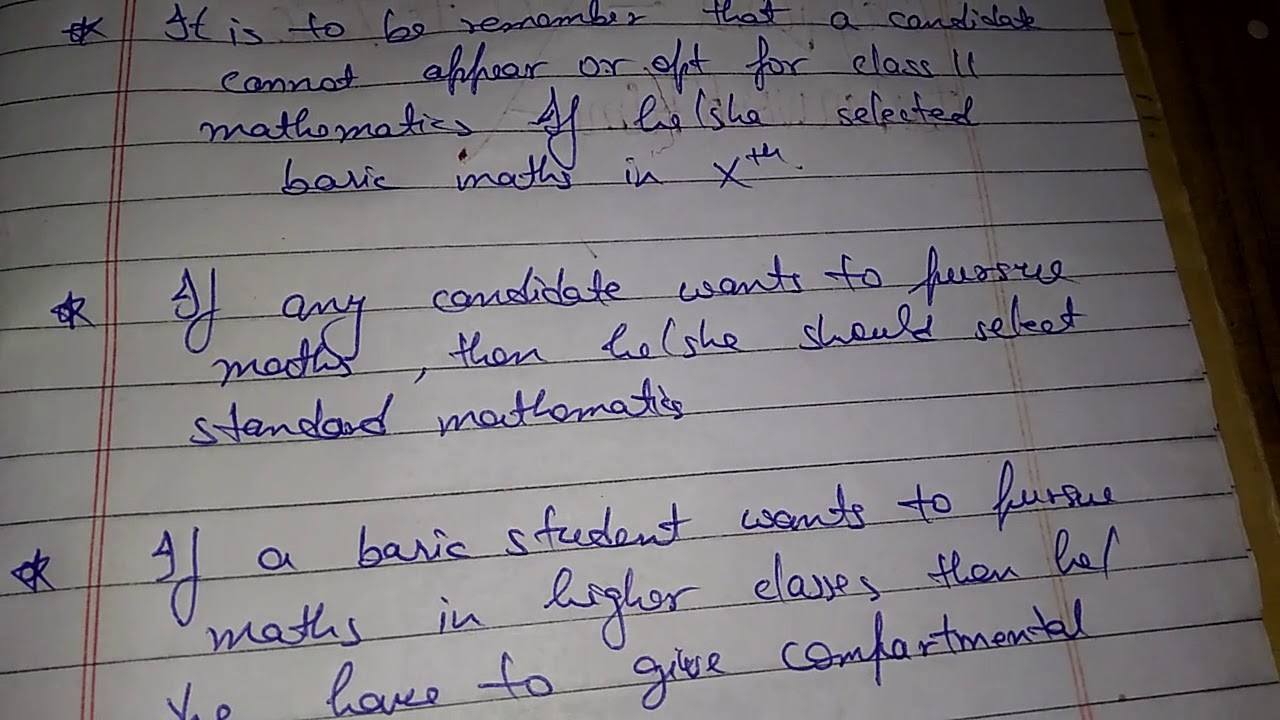 * It is to be remember that a candidate
cannot appear or opt for class 11
mathematics If he/she selected
basic maths in Xth.
* If any candidate wants to pursue
maths, then he/she should select
standard mathematics
* If a basic student wants to pursue
maths in higher classes then he/
she have to give compartmental